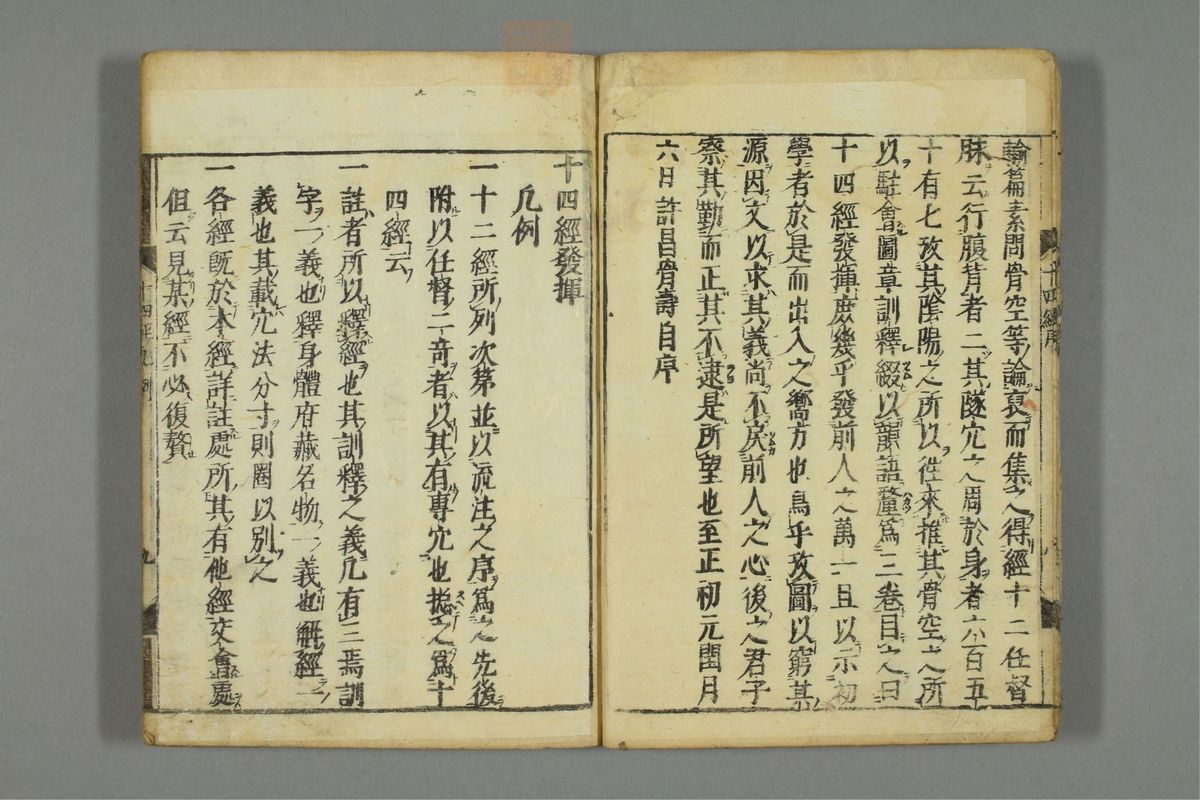 輸篇素問骨空等論裒而集之得經十二任督
脉云行腹背者二其隧穴之周於身者六百五
十有七攷其陰陽之所以徃來推其骨空之所
以駐會圖章訓釋綴以韻語釐爲三卷目之曰
十四經發揮庶幾乎發前人之萬一且以示初
學者於是而出入之嚮方也烏乎攷圖以窮其
源因文以求其義尚不戾前人之心後之君子
察其勤而正其不逮是所望也至正初元閏月
六日許昌滑壽自序
十四經序
十四經發揮
凡例
一十二經所列次第並以流注之序爲之先後
附以任督二奇者以其有專穴也揔之爲十
四經云
一註者所以釋經也其訓釋之義凡有三焉訓
字一義也釋身體府藏名物一義也解經一
義也其載穴法分寸則圈以別之
一各經既於本經詳註處所其有他經交會處
但云見某經不必復贅
十四經凡例
九